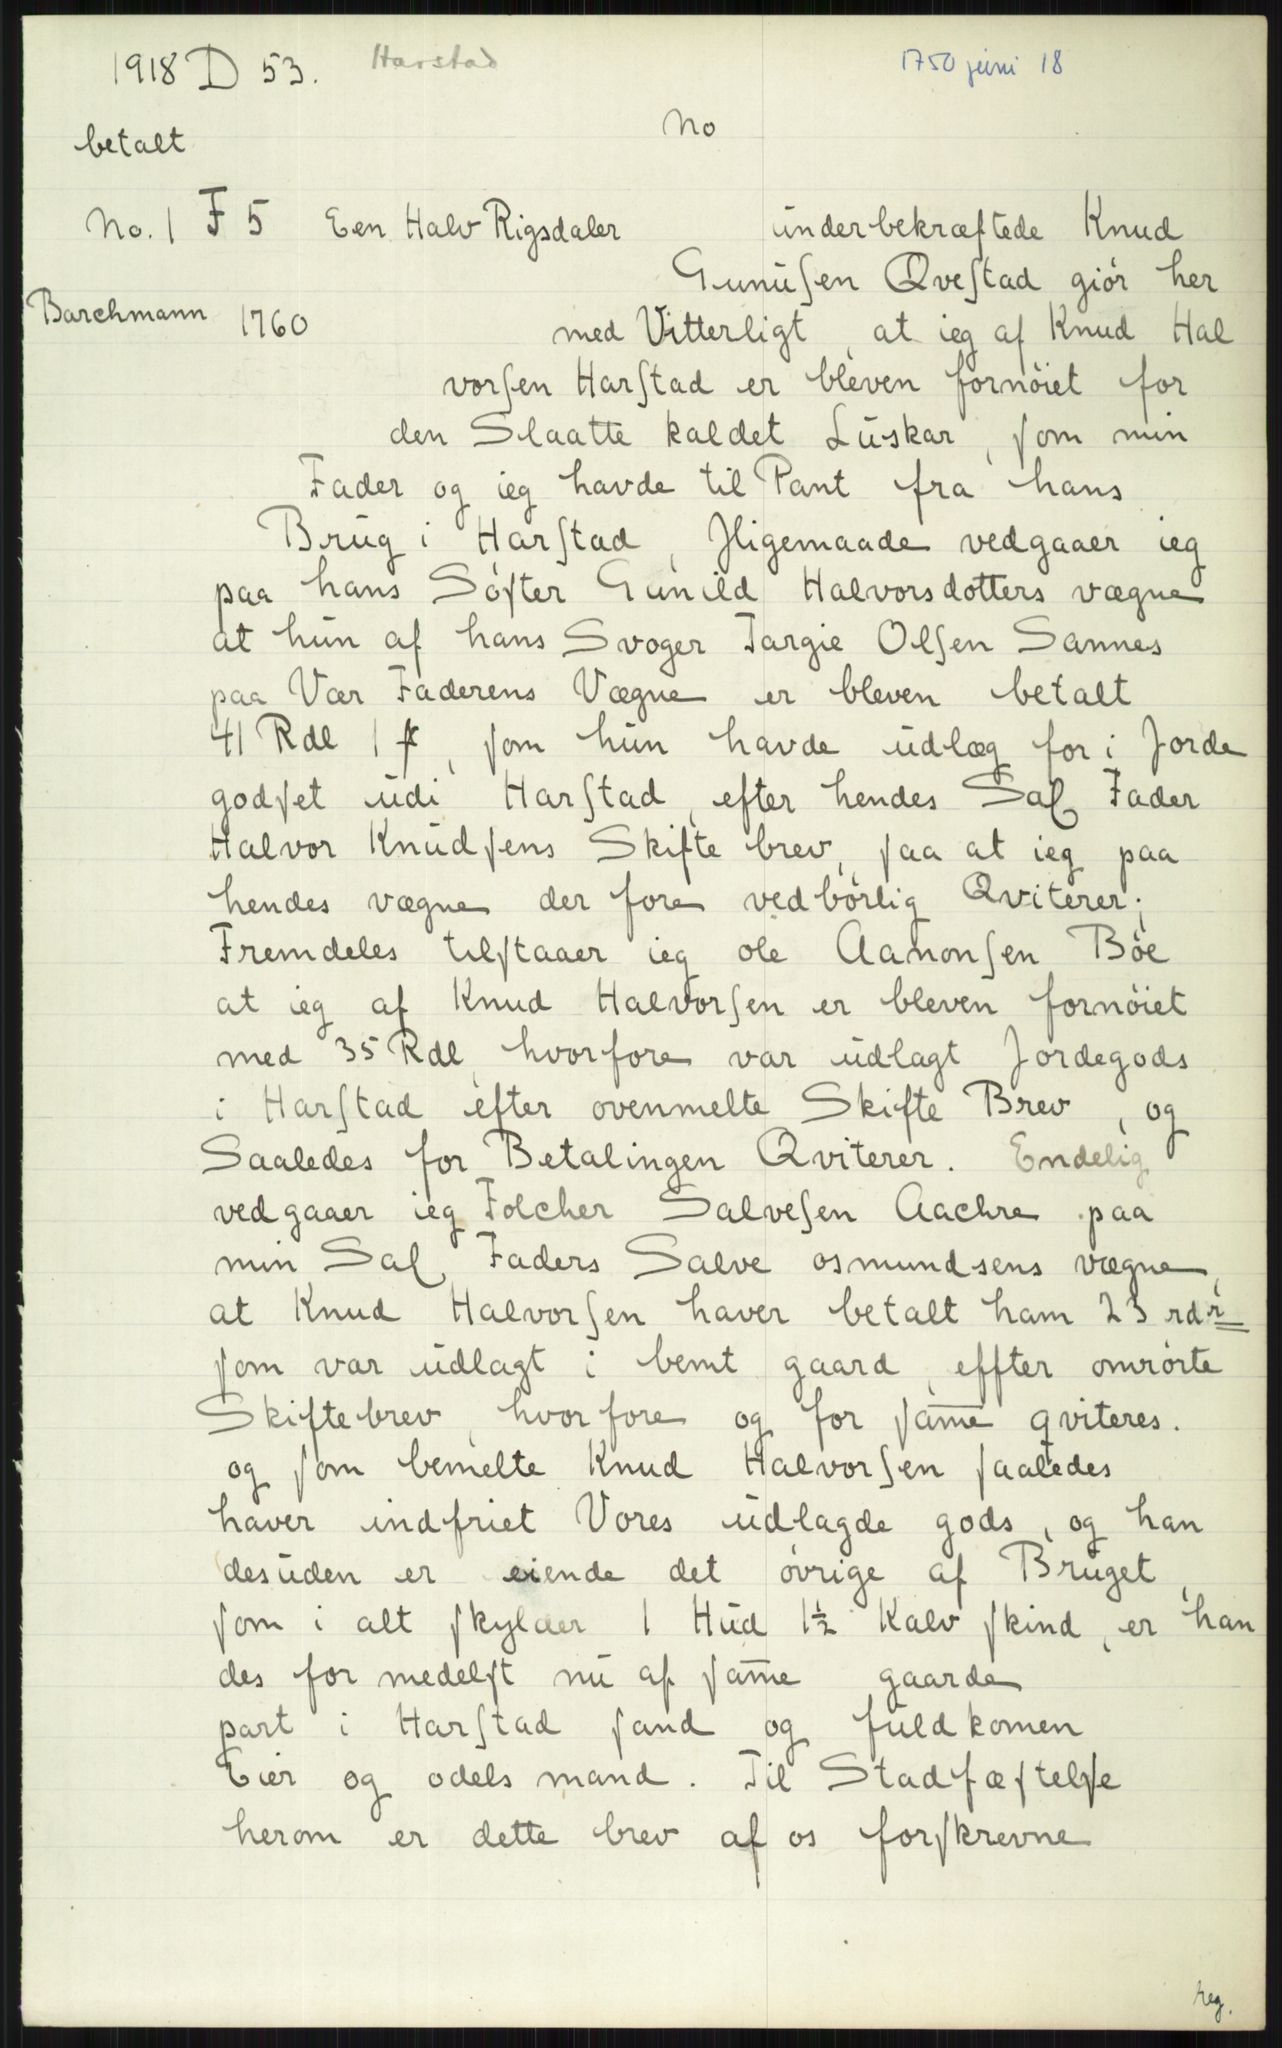 1918 D 53. Harstad 1750 juni 18
No
betalt
No. 1 F 5 Een Halv Rigsdaler underbekræftede Knud
Gunuſen Qveſtad giör her
Barchmann 1760 med Vitterligt, at ieg af Knud Hal
vorſen Harſtad er bleven fornöiet for
den Slaatte kaldet Luskar, ſom min
Fader og ieg havde til Pant fra hans
Brug i Harſtad, Jligemaade vedgaaer ieg
paa hans Söſter Gunild Halvorsdotters vægne
at hun af hans Svoger Targie Olſen Sannes
paa Vær Faderens Vægne er bleven betalt
41 Rdl 1, ſom hun havde udlæg for i Jorde
godſet udi Harſtad, efter hendes Sal Fader
Halvor Knudſens Skifte brev, ſaa at ieg paa
hendes vægne der fore vedbörlig Qviterer;
Fremdeles tilſtaaer ieg ole Aanonſen Böe
at ieg af Knud Halvorſen er bleven fornöiet
med 35 Rdl, hvorfore var udlagt Jordegods
i Harſtad efter ovenmelte Skifte Brev, og
Saaledes for Betalingen Qviterer. Endelig
vedgaaer ieg Folcher Salveſen Aachre paa
min Sal Faders Salve osmundsens vægne,
at Knud Halvorſen haver betalt ham 23 rdr
ſom var udlagt i bemt gaard, effter omrörte
Skiftebrev, hvorfore og for ſam̄e qviteres.
og ſom bemelte Knud Halvorſen ſaaledes
haver indfriet Vores udlagde gods, og han
desuden er eiende det övrige af Bruget,
ſom i alt ſkylder 1 Hud 1½ Kalv ſkind, er han
des for medelſt nu af ſam̄e gaarde
part i Harſtad ſand og fuldkomen
Eier og odels mand. Til Stadfæſtelſe
herom er dette brev af os forſkrevne
reg.